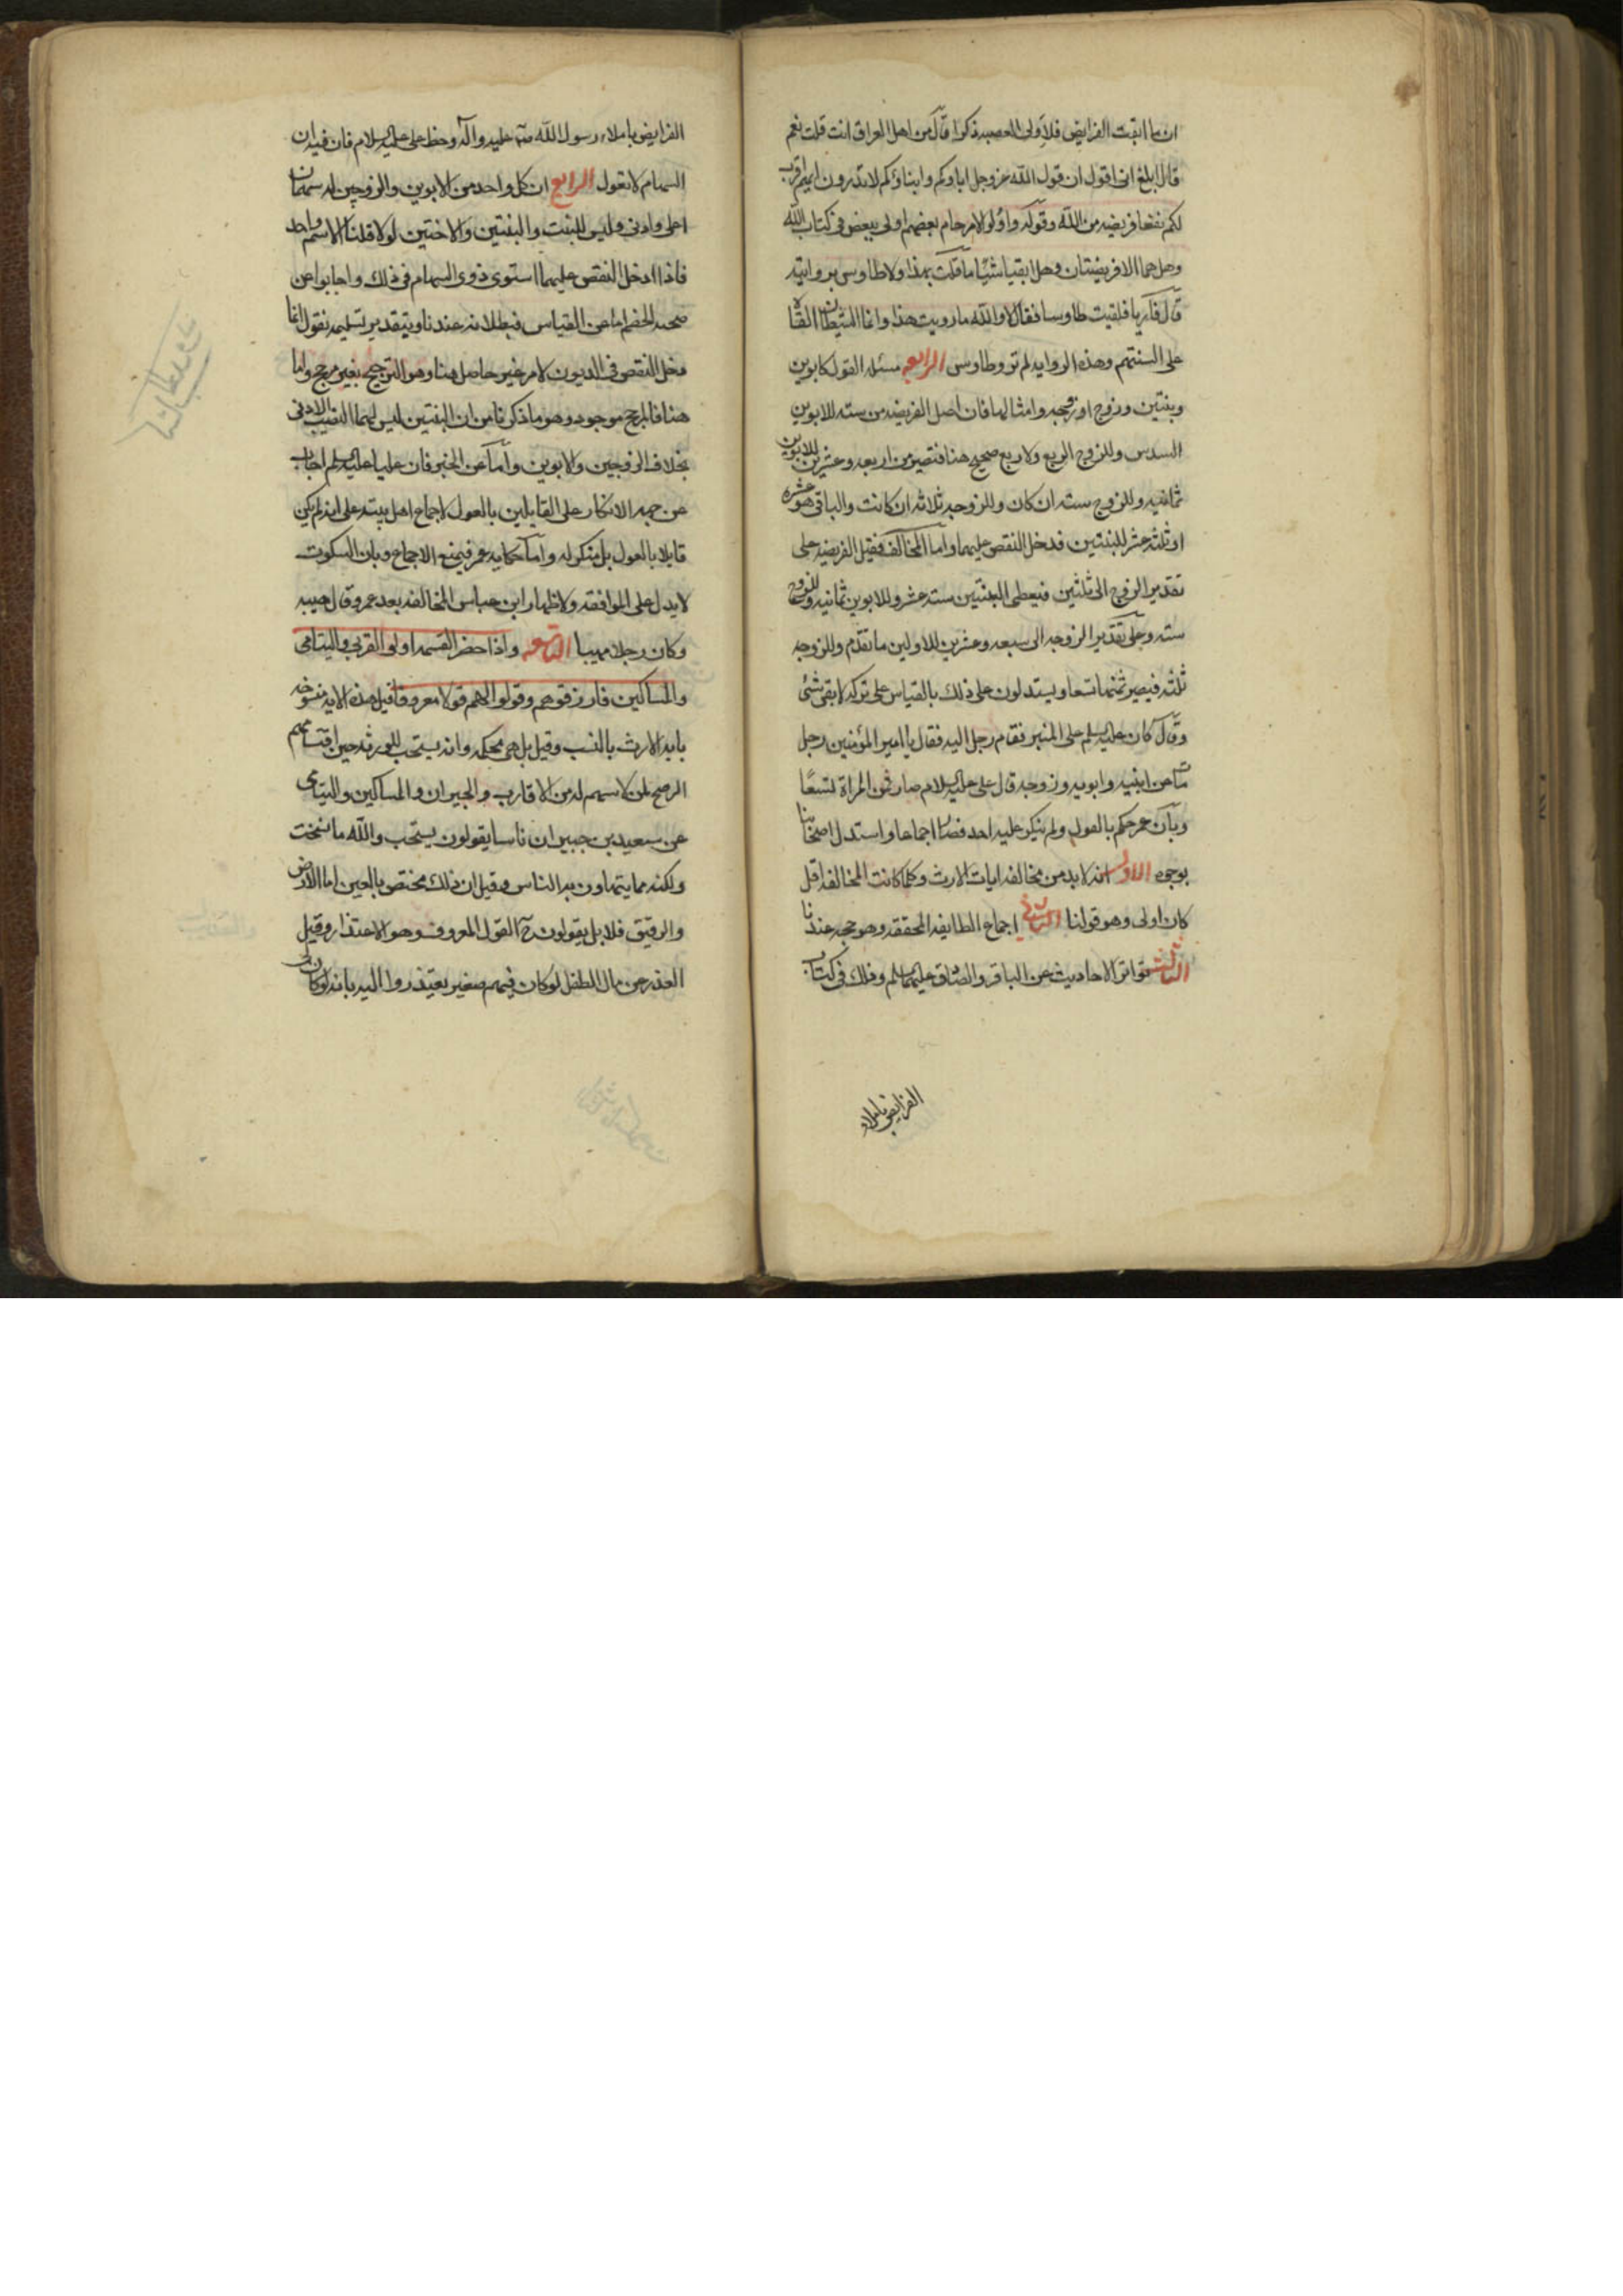 ان ما ابقت الفرايض فلاولى العصبه ذكر قال من اهل العراق انت قلت نعم
قال ابلغ انى اقول ان قول الله عز وجل اباوكم وابناوكم لا تدرون ايهم اقرب
لكم نفعا فريضه من الله وقوله واولو الارحام بعضهم اولى ببعض فى كتاب الله
وهل هما الا فريضتان وهل ابقيا شيئا ما قلت بهذا ولا طاوس يرويه
قال فلقيت طاوسا فقال لا والله ما رويت هذا وانما الشيطان القاه
على السنتهم وهذه الروايه لم ترو طاوس الرابع مسئله العول كابوين
وبنتين وزوج او زوجه وامثالها فان اصل الفريضه من سته للابوين
السدس وللزوج الربع ولا ربع صحيح هنا فتصير من اربعه وعشرين للابوين
ثمانيه وللزوج سته ان كان وللزوجه ثلاثه ان كانت والباقى هو عشره
او ثلثه عشر للبنتين فدخل النقص عليهما واما المخالف فيقبل الفريضه على
تقدير الزوج الى ثلثين فيعطى البنتين سته عشر وللابوين ثمانيه وللزوج
سته وعلى تقدير الزوجه الى سبعه وعشرين للاولين ما تقدم وللزوجه
ثلثه فيصير ثمنها تسعا ويستدلون على ذلك بالقياس على تركه لا بقى شئ
وقال كان عليه السلم على المنبر فقام رجل اليه فقال يا امير المؤمنين رجل
مات عن ابنتيه وابويه وزوجه قال على عليه السلام صار ثمن المراة تسعا
وبان عمر حكم بالعول ولم ينكر عليه احد فصار اجماعا واستدل اصحابنا
بوجوه الاول انه لا بد من مخالفه ايات الارث وكلما كانت المخالفه اقل
كان اولى وهو قولنا الثانى اجماع الطايفه المحققه وهو حجه عندنا
الثالث تواتر الاحاديث عن الباقر والصادق عليهما السلم وذلك فى كتاب
الفرايض باملاء
الفرايض باملاء رسول الله صلى الله عليه واله وخط على عليه السلام فان فيه ان
السهام لا تعول الرابع ان كل واحد من الابوين والزوجين له سهمان
اعلى وادنى وليس للبنت والبنتين والاختين لولا قلنا الا سهم واحد
فاذا ادخل النقص عليهما استوى ذوى السهام فى ذلك واجابوا عن
حجه الخصم اما عن القياس فبطلانه عندنا وبتقدير تسليمه نقول انما
دخل النقص فى الديون لامر غير حاصل هنا وهو الترجيح بغير مرجح واما
هنا فالمرجح موجود وهو ما ذكرنا من ان البنتين ليس لهما النصيب الادنى
بخلاف الزوجين والابوين واما عن الخبر فان عليا عليه السلم اجاب
عن جهه الانكار على القايلين بالعول لاجماع اهل بيته على انه لم يكن
قايلا بالعول بل منكر له واما حكايه عمر فيمنع الاجماع وبان السكوت
لا يدل على الموافقه ولاظهار ابن عباس المخالفه بعد عمر وقال هيبه
وكان رجلا مهيبا التاسعه واذا حضر القسمه اولو القربى واليتامى
والمساكين فارزقوهم وقولوا لهم قولا معروفا قيل هذه الايه منسوخه
بايه الارث بالنسب وقيل بل هى محكمه وانه يستحب للورثه حين اقتسامهم
الرضخ لمن لا سهم له من الاقارب والجيران والمساكين واليتامى
عن سعيد بن جبير ان ناسا يقولون يستحب والله ما نسخت
ولكنه مما يتهاون به الناس وقيل ان ذلك مختص بالعين اما الارض
والرقيق فلا بل يقولون ح القول المعروف وهو الاعتذار وقيل
العذر عن مال الطفل لو كان فيهم صغير يعتذروا اليه بانه لو كان